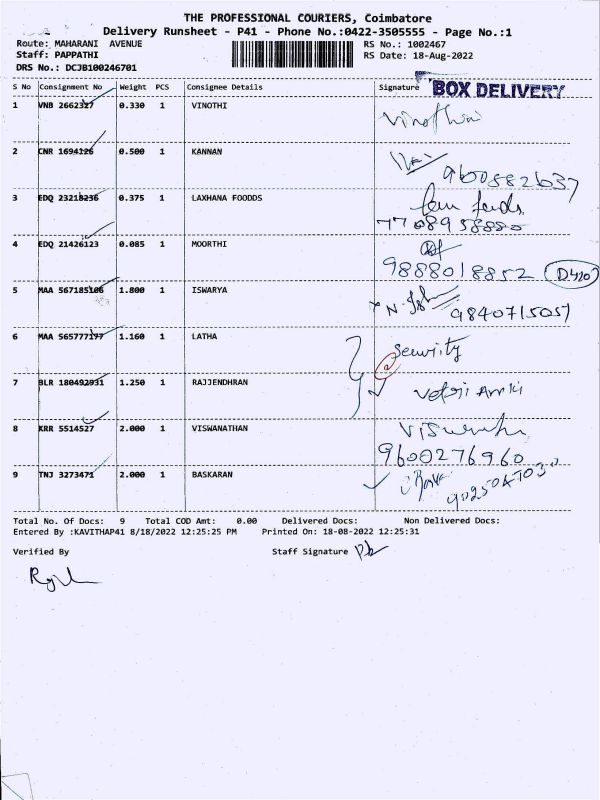 THE PROFESSIONAL COURIERS, Coimbatore
Delivery Runsheet - P41 - Phone No.:0422-3505555 - Page No.:1
Route: MAHARANI AVENUE
RS No.: 1002467
Staff: PAPPATHI
RS Date: 18-Aug-2022
DRS No.: DCJB100246701
S No Consignment No Weight PCS Consignee Details Signature
BOX DELIVERY
1 VNB 2662327 0.330 1 VINOTHI
2 CNR 1694126 0.500 1 KANNAN
9600582637
3 EDQ 23218236 0.375 1 LAXHANA FOODDS
foods
7708958880
4 EDQ 21426123 0.085 1 MOORTHI
9888018852 D420
5 MAA 567185106 1.800 1 ISWARYA
9840715057
6 MAA 565777177 1.160 1 LATHA Security
7 BLR 180492931 1.250 1 RAJJENDHRAN
8 KRR 5514527 2.000 1 VISWANATHAN
9600276960
9 TNJ 3273471 2.000 1 BASKARAN
Total No. Of Docs: 9 Total COD Amt: 0.00 Delivered Docs: Non Delivered Docs:
Entered By :KAVITHAP41 8/18/2022 12:25:25 PM Printed On: 18-08-2022 12:25:31
Verified By Staff Signature